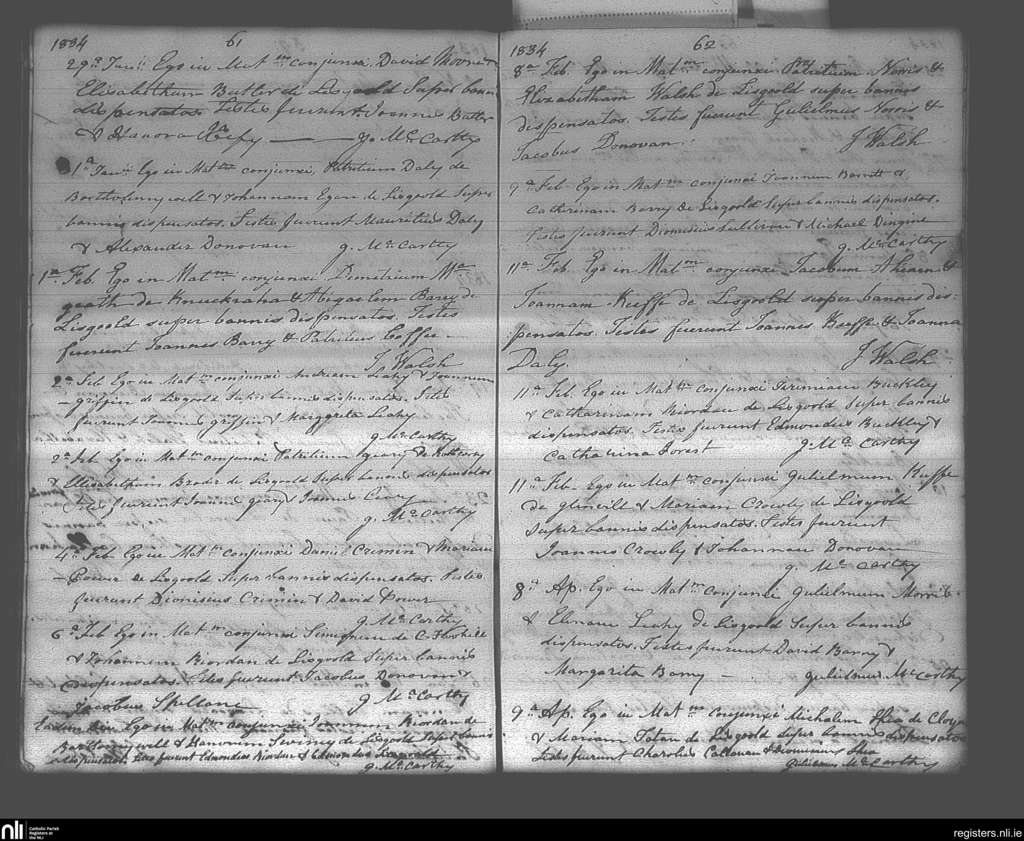 1834 61
29a Janii Ego in Matm conjunxi David Moone
Elisabetham Butler de Lisgoold Super bannis
dispensatos Testes fuerunt Joannes Butler
& Hanora J. McCarthy
1a Janii Ego in Matm conjunxi Patritium Daly de
& Johannam Egan de Lisgoold Super
bannis dispensatos. Testes fuerunt Mauritius Daly
& Alexander Donovan J. McCarthy
1a Feb. Ego in Matm conjunxi Dimitrium Mc
grath de Knuckraha & Abigaelem Barry de
Lisgoold super bannis dispensatos. Testes
fuerunt Joannes Barry & Patritius Coffee
J. Walsh
2a Feb Ego in Matm conjunxi Andream Leahy & Joannam
griffin de Lisgoold Super bannis dispensatos. Testes
fuerunt Joannes griffin & Margarita Leahy
J. McCarthy
2a Feb. Ego in Matm conjunxi Patritium geary de
& Elisabetham Broder de Lisgoold Super bannis dispensatos
Testes fuerunt Joannes geary & Joannes
J. McCarthy
4a Feb Ego in Matm conjunxi Daniel Cremin & Mariam
Power de Lisgoold Super bannis dispensatos. Testes
fuerunt Dionisius Cremin & David Power
J. McCarthy
6a Feb Ego in Matm conjunxi de
& Johannam Riordan de Lisgoold Super bannis
dispensatos. Testes fuerunt Jacobus Donovan &
Jacobus Spillane J McCarthy
Eadem die Ego in Matm conjunxi Joannem Riordan de
& Hanoram Swiney de Lisgoold Super bannis
dispensatos. Testes fuerunt Edmondus Riordan & Edmondus
J. McCarthy
1834 62
8a Feb. Ego in Matm conjunxi Patritium Norris &
Elizabetham Walsh de Lisgoold super bannis
dispensatos. Testes fuerunt Gulielmus Norris &
Jacobus Donovan. J Walsh
9a Feb Ego in Matm conjunxi Joannem Barrett &
Catherinam Barry de Lisgoold Super bannis dispensatos.
Testes fuerunt Dionisius Sullivan & Michael
J. McCarthy
11a Feb. Ego in Matm conjunxi Jacobum Ahearn &
Joannam Keeffe de Lisgoold super bannis dis:
pensatos. Testes fuerunt Joannes Keeffe & Joanna
Daly. J Walsh
11a Feb. Ego in Matm conjunxi Jeremiam Buckley
& Catharinam Riordan de Lisgoold Super bannis
dispensatos. Testes fuerunt Edmondus Buckley &
Catharina Forest J. Mc Carthy
11a Feb. Ego in Matm conjunxi Gulielmum Keeffe
de & Mariam Crowly de Lisgoold
Super bannis dispensatos. Testes fuerunt
Joannes Crowly & Johannam Donovan
J. McCarthy
8a Ap. Ego in Matm conjunxi Gulielmum Morris
& Elenam Leahy de Lisgoold Super bannis
dispensatos. Testes fuerunt David Barry &
Margarita Barry Gulielmus McCarthy
9a Ap. Ego in Matm conjunxi Michalem Shea de Cloyn
& Mariam de Lisgoold Super bannis dispensatos
testes fuerunt Charolis Callanan & Dionisius Shea
Gulielmus McCarthy
nli Catholic Parish
Registers at
the NLI
registers.nli.ie